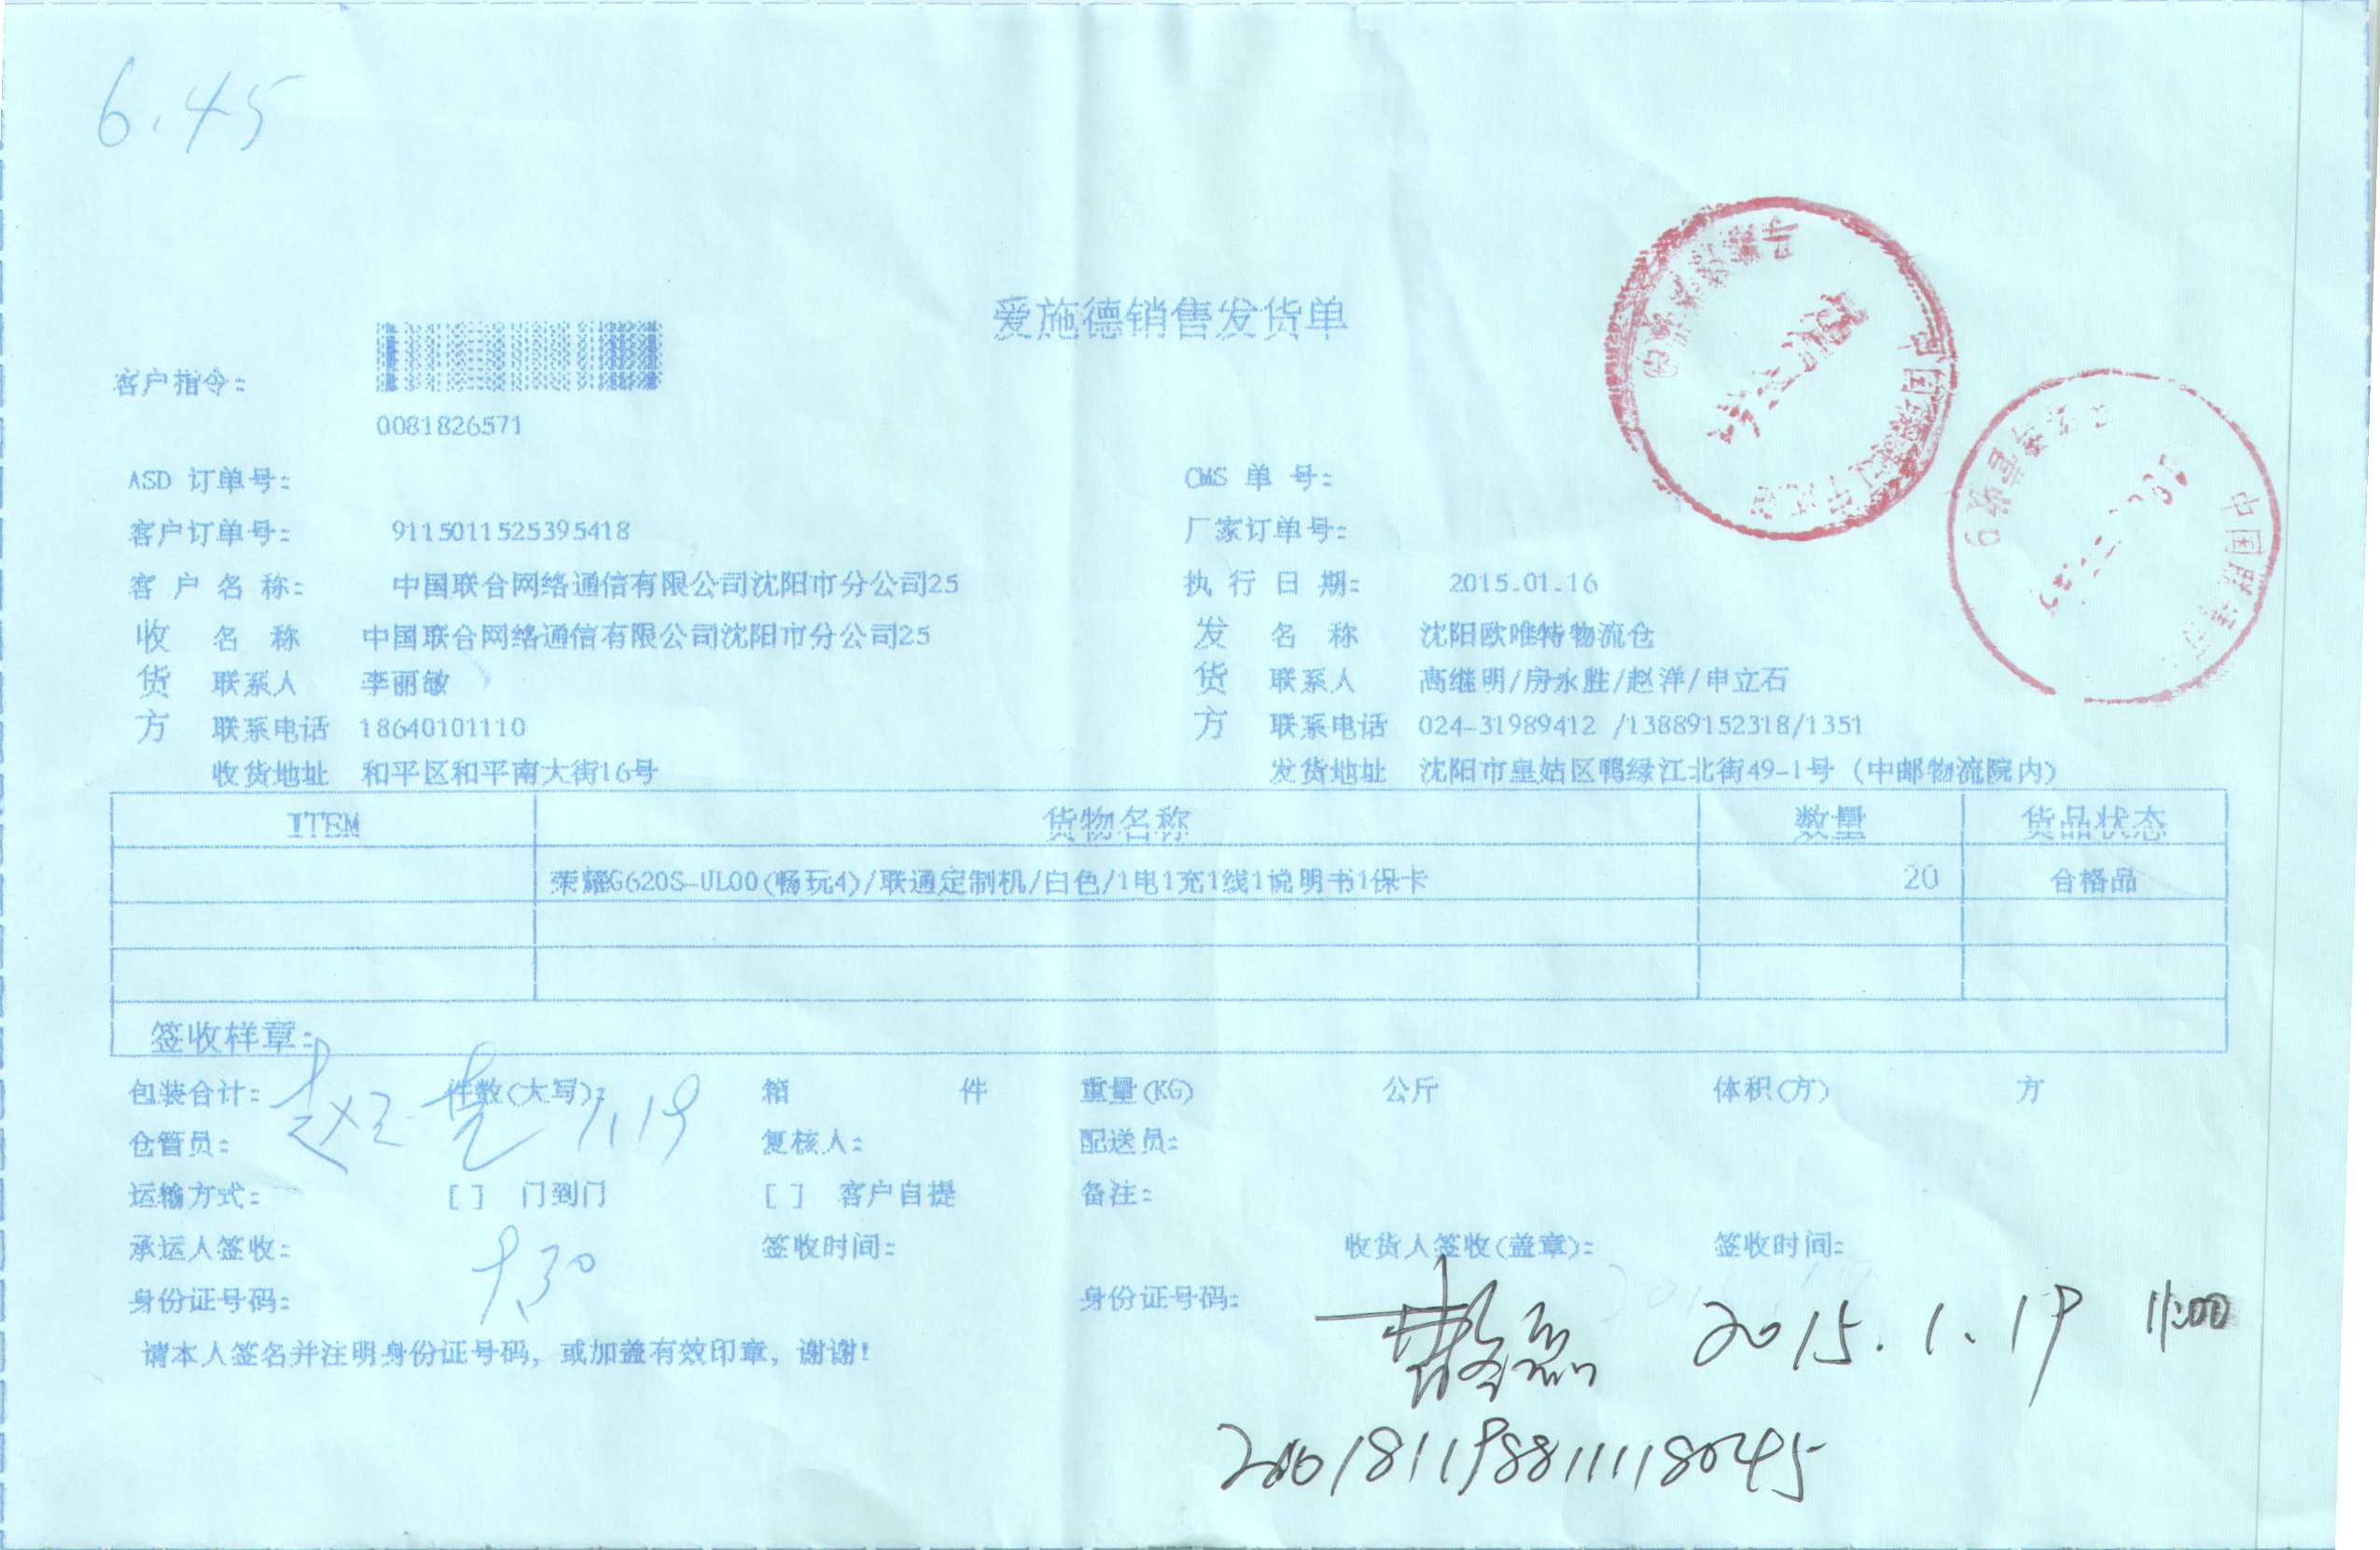 6.45
爱施德销售发货单
客户指令:
0081826571
ASD 订单号: CMS 单 号:
客户订单号: 9115011525395418 厂家订单号:
客 户 名 称: 中国联合网络通信有限公司沈阳市分公司25 执 行 日 期: 2015.01.16
收 名 称 中国联合网络通信有限公司沈阳市分公司25 发 名 称 沈阳欧唯特物流仓
货 联系人 李丽敏 货 联系人 高继明/房永胜/赵洋/申立石
方 联系电话 18640101110 方 联系电话 024-31989412 /13889152318/1351
收货地址 和平区和平南大街16号 发货地址 沈阳市皇姑区鸭绿江北街49-1号 (中邮物流院内)
ITEM 货物名称 数量 货品状态
荣耀G620S-UL00(畅玩4)/联通定制机/白色/1电1充1线1说明书1保卡 20 合格品
签收样章:
包装合计: 件数(大写): 箱 件 重量(KG) 公斤 体积(方) 方
1.19
仓管员: 复核人: 配送员:
运输方式: [ ] 门到门 [ ] 客户自提 备注:
承运人签收: 签收时间: 收货人签收(盖章): 签收时间:
身份证号码: 身份证号码:
2015.1.19 11:00
请本人签名并注明身份证号码, 或加盖有效印章, 谢谢!